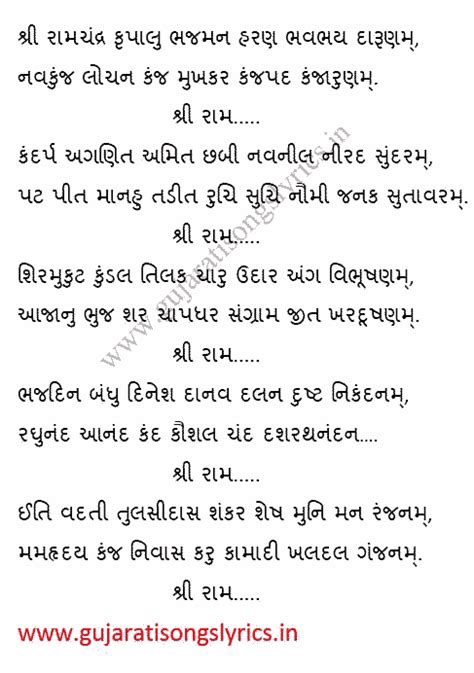 શ્રી રામચંદ્ર કૃપાલુ ભજમન હરણ ભવભય દારૂણમ્,
નવકુંજ લોચન કંજ મુખકર કંજપદ કંજારુણમ્.
શ્રી રામ.....
કંદર્પ અગણિત અમિત છબી નવનીલ નીરદ સુંદરમ્,
પટ પીત માનહુ તડીત રુચિ સુચિ નૌમી જનક સુતાવરમ્.
શ્રી રામ.....
શિરમુકુટ કુંડલ તિલક ચારુ ઉદાર અંગ વિભૂષણમ્,
આજાનુ ભુજ શર ચાપધર સંગ્રામ જીત ખરદૂષણમ્.
શ્રી રામ.....
ભજદિન બંધુ દિનેશ દાનવ દલન દુષ્ટ નિકંદનમ્,
રઘુનંદ આનંદ કંદ કૌશલ ચંદ દશરથનંદન....
શ્રી રામ.....
ઈતિ વદતી તુલસીદાસ શંકર શેષ મુનિ મન રંજનમ્,
મમહૃદય કંજ નિવાસ કરુ કામાદી ખલદલ ગંજનમ્.
શ્રી રામ.....
www.gujaratisongslyrics.in
www.gujaratisongslyrics.in